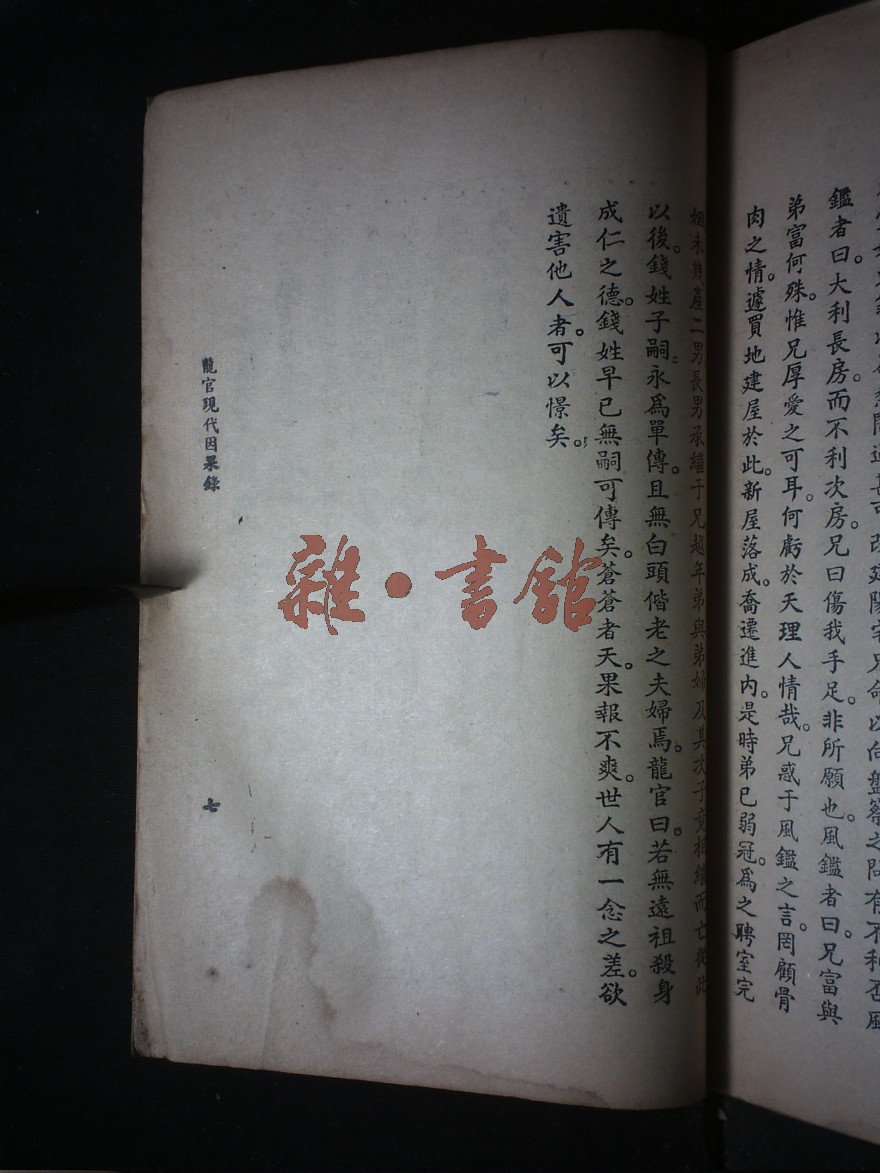 建陽宅兄命以向盤察之
鑑者曰。大利長房。而不利次房。兄曰傷我手足。非所願也。風鑑者曰。兄富與
弟富何殊。惟兄厚愛之可耳。何虧於天理人情哉。兄惑于風鑑之言。罔顧骨
肉之情。遽買地建屋於此。新屋落成。喬遷進內。是時弟已弱冠。爲之聘室完
姻未幾產二男長男承繼于兄越年弟與弟婦及其次子竟相繼而亡從此
以後。錢姓子嗣。永爲單傳。且無白頭偕老之夫婦焉。龍官曰。若無遠祖殺身
成仁之德。錢姓早已無嗣可傳矣。蒼蒼者天。果報不爽。世人有一念之差。欲
遺害他人者。可以憬矣。
龍官現代因果錄
七
雜·書館